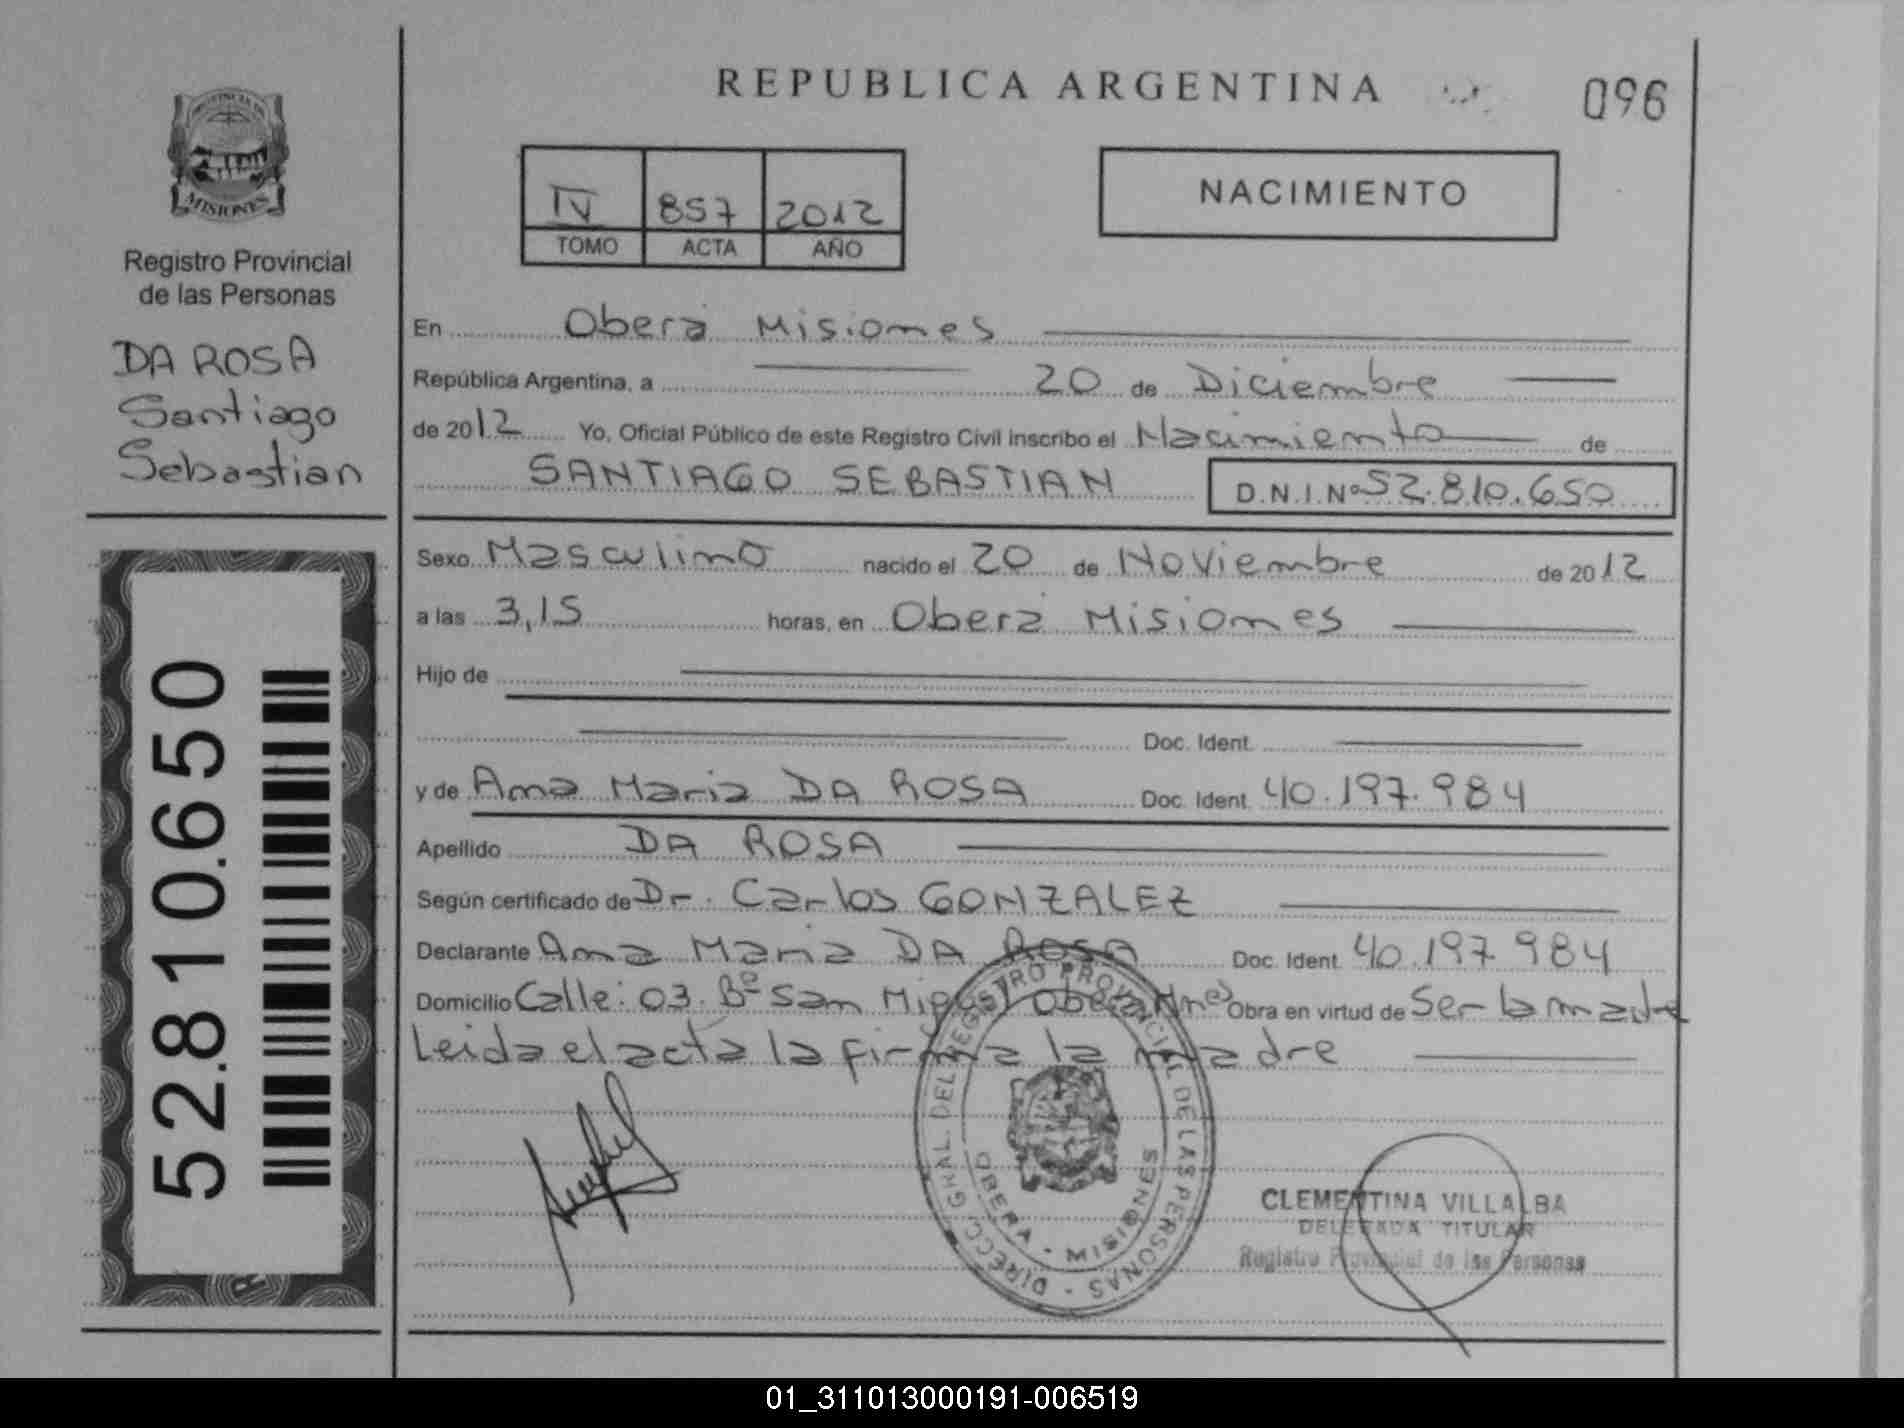 REPUBLICA ARGENTINA
096
PROVINCIA DE
MISIONES
Registro Provincial
de las Personas
DA ROSA
Santiago
Sebastian
52.810.650
IV 857 2012
TOMO ACTA AÑO
NACIMIENTO
En Oberá Misiones
República Argentina, a 20 de Diciembre
de 2012 Yo, Oficial Público de este Registro Civil inscribo el Nacimiento de
SANTIAGO SEBASTIAN D.N.I. Nº 52.810.650
Sexo Masculino nacido el 20 de Noviembre de 2012
a las 3,15 horas, en Oberá Misiones
Hijo de
Doc. Ident.
y de Ana Maria DA ROSA Doc. Ident. 40.197.984
Apellido DA ROSA
Según certificado de Dr. Carlos GONZALEZ
Declarante Ana Maria DA ROSA Doc. Ident. 40.197.984
Domicilio Calle: 03. Bº San Miguel Oberá Mnes Obra en virtud de Ser la madre
Leida el acta la firma la madre
DIRECC. GRAL. DEL REGISTRO PROVINCIAL DE LAS PERSONAS
OBERA - MISIONES
CLEMENTINA VILLALBA
DELEGADA TITULAR
Registro Provincial de las Personas
01_311013000191-006519